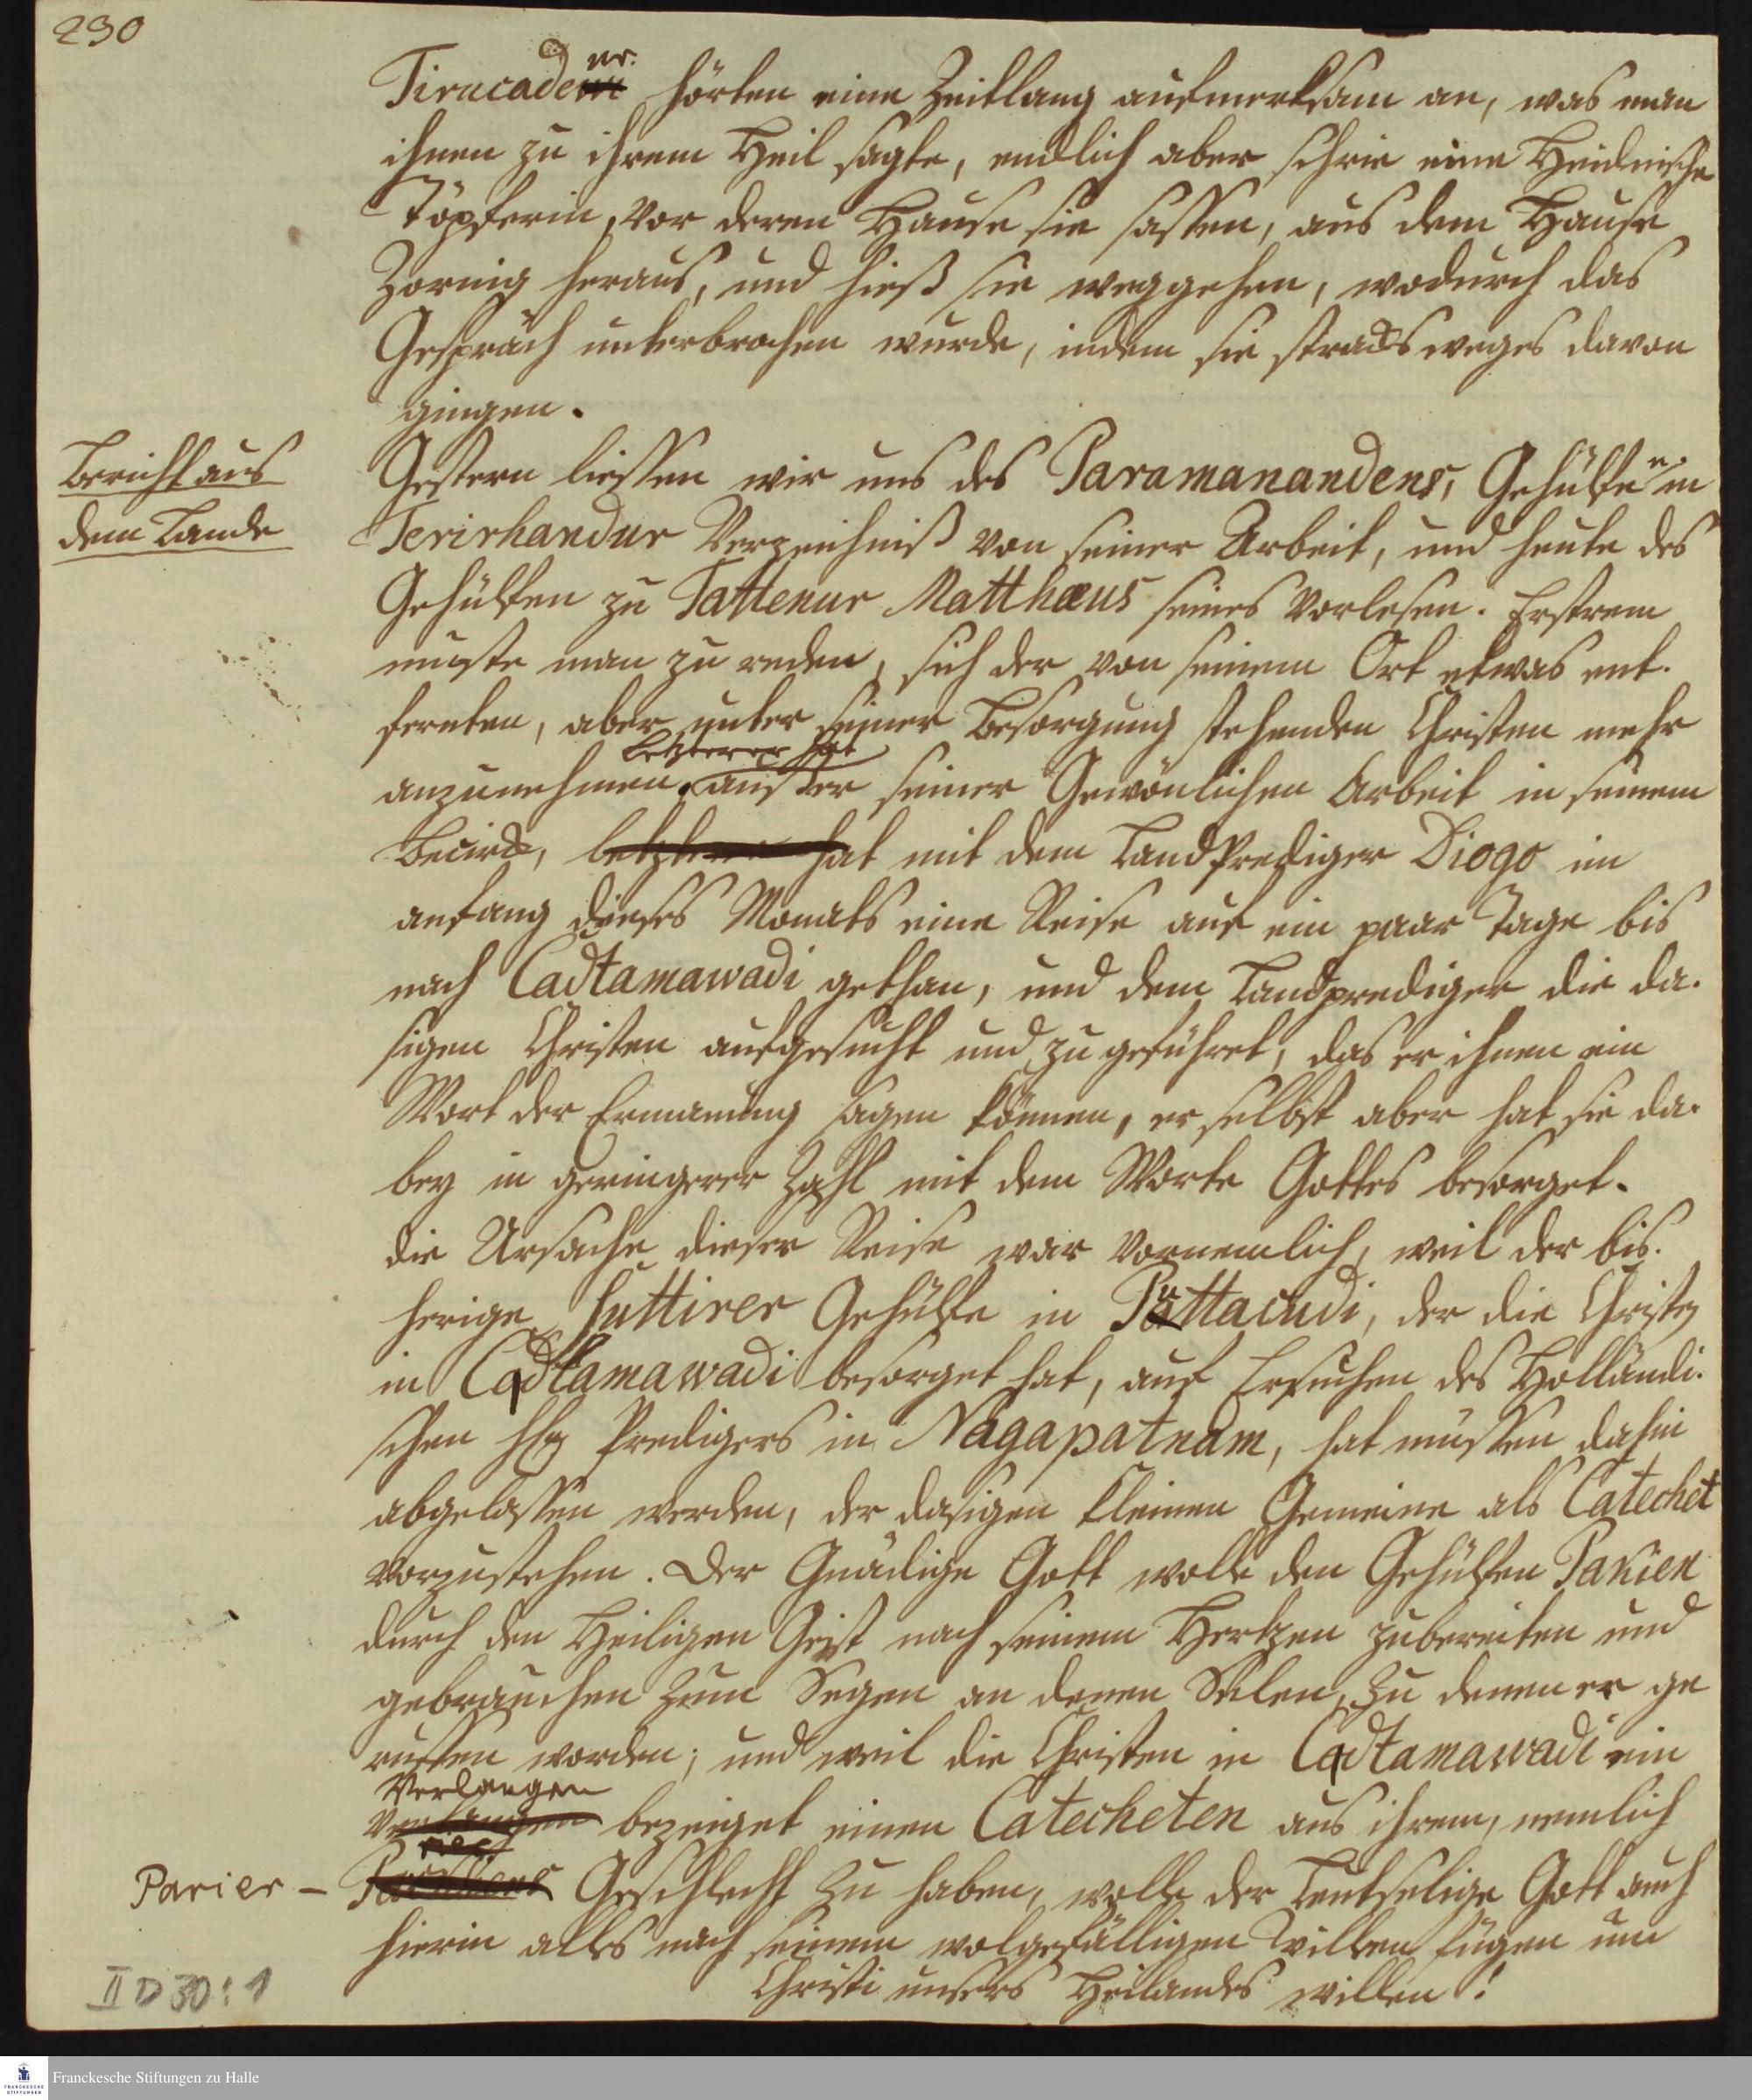 290
Tirucadeur. hörten eine Zeitlang aufmerksam an, was man
ihnen zu ihrem Heil sagte, endlich aber schrie eine Heidnische
Töpferin, vor deren Hause sie sassen, aus dem Hause
Zornig heraus, und hieß sie weggehen, wodurch das
Gespräch unterbrochen wurde, indem sie stracksweges davon
gingen.
Bericht aus
dem Lande
Gestern liessen wir uns des Paramanandens, Gehülfen in
Perirhandur Verzeichniß von seiner Arbeit, und heute des
Gehülfen zu Tattenur Matthæus seines Vorlesen. Erstrem
muste man zu reden, sich der von seinem Ort etwas ent.
fernten, aber unter seiner Besorgung stehenden Christen mehr
letzterer hat
anzunehmen. ausser seiner Gewönlichen Arbeit in seinem
Becirck, hat mit dem LandPrediger Diogo im
anfang dieses Monats eine Reise auf ein paar Tage bis
nach Cadtamawadi gethan, und dem Landprediger die da.
sigen Christen aufgesucht und zu geführet, das er ihnen ein
Wort der Ermanung sagen können, er selbst aber hat sie da.
bey in geringerer Zahl mit dem Worte Gottes besorget.
die Ursache dieser Reise war vornemlich, weil der bis.
herige Suttirer Gehülfe in Puttacudi, der die Christen
in Cadtamawadi besorget hat, auf Ersuchen des Holländi.
schen Predigers in Nagapatnam, hat müssen dahin
abgelassen werden, der dasigen kleinen Gemeine als Catechet
vorzustehen. Der Gnädige Gott wolle den Gehülfen
durch den Heiligen Geist nach seinem Hertzen zubereiten und
gebrauchen zum Segen an denen Selen, zu denen er ge
ruffen worden; und weil die Christen in Cadtamawadi ein
Verlangen
bezeiget einen Catecheten aus ihrem, nemlich
Parier – Geschlecht zu haben, wolle der Leutselige Gott auch
hierin alles nach seinem wolgefälligen Willen fügen um
Christi unsers Heilandes willen!
II D 30:1
Franckesche Stiftungen zu Halle
FRANCKESCHE
STIFTUNGEN